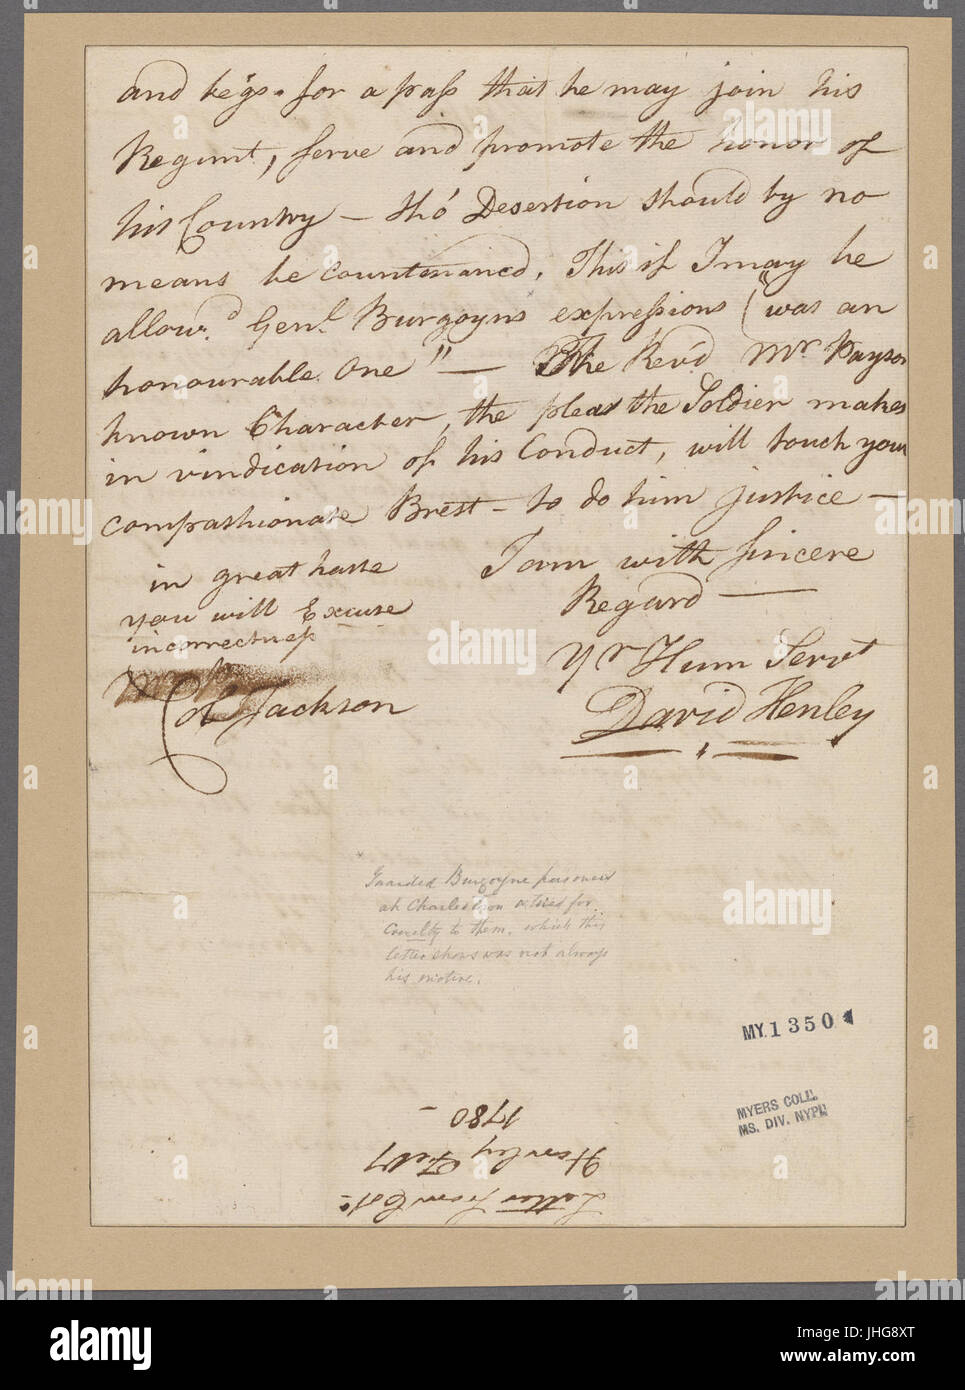 and begs for a pass that he may join his
Regimt, serve and promote the honor of
his Country — tho' Desertion should by no
means be countenanced. This if I may be
allow.d Genl. Burgoyns expressions ("was an
honourable One" — The Rev'd Mr. Payson
known Character, the pleas the Soldier makes
in vindication of his Conduct, will touch your
compashionate Brest — to do him justice —
I am with sincere
Regard —
Yr Hum Servt
David Henley
in great haste
you will Excuse
incorrectness
Col Jackson
Guarded Burgoyne prisoners
at Charlestown & tried for
Cruelty to them, which this
letter shows was not always
his motive.
MY.1350
MYERS COLL.
MS. DIV. NYPL
Letter from Col.
Henley Feb 7
1780
alamy
Image ID: JHG8XT
www.alamy.com